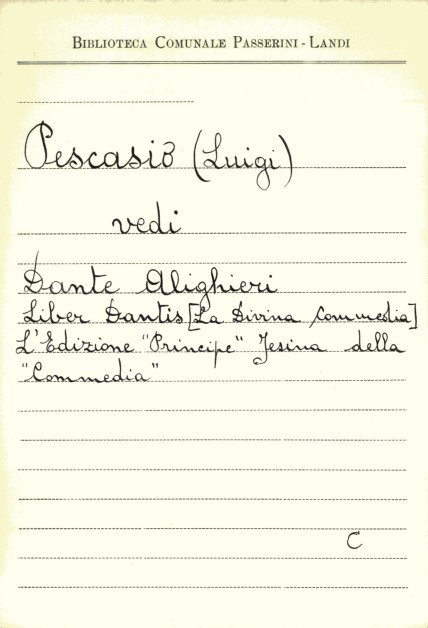 BIBLIOTECA COMUNALE PASSERINI - LANDI
Pescasio (Luigi)
vedi
Dante Alighieri
Liber Dantis [La Divina Commedia]
L'Edizione "Principe" Jesina della
"Commedia"
C